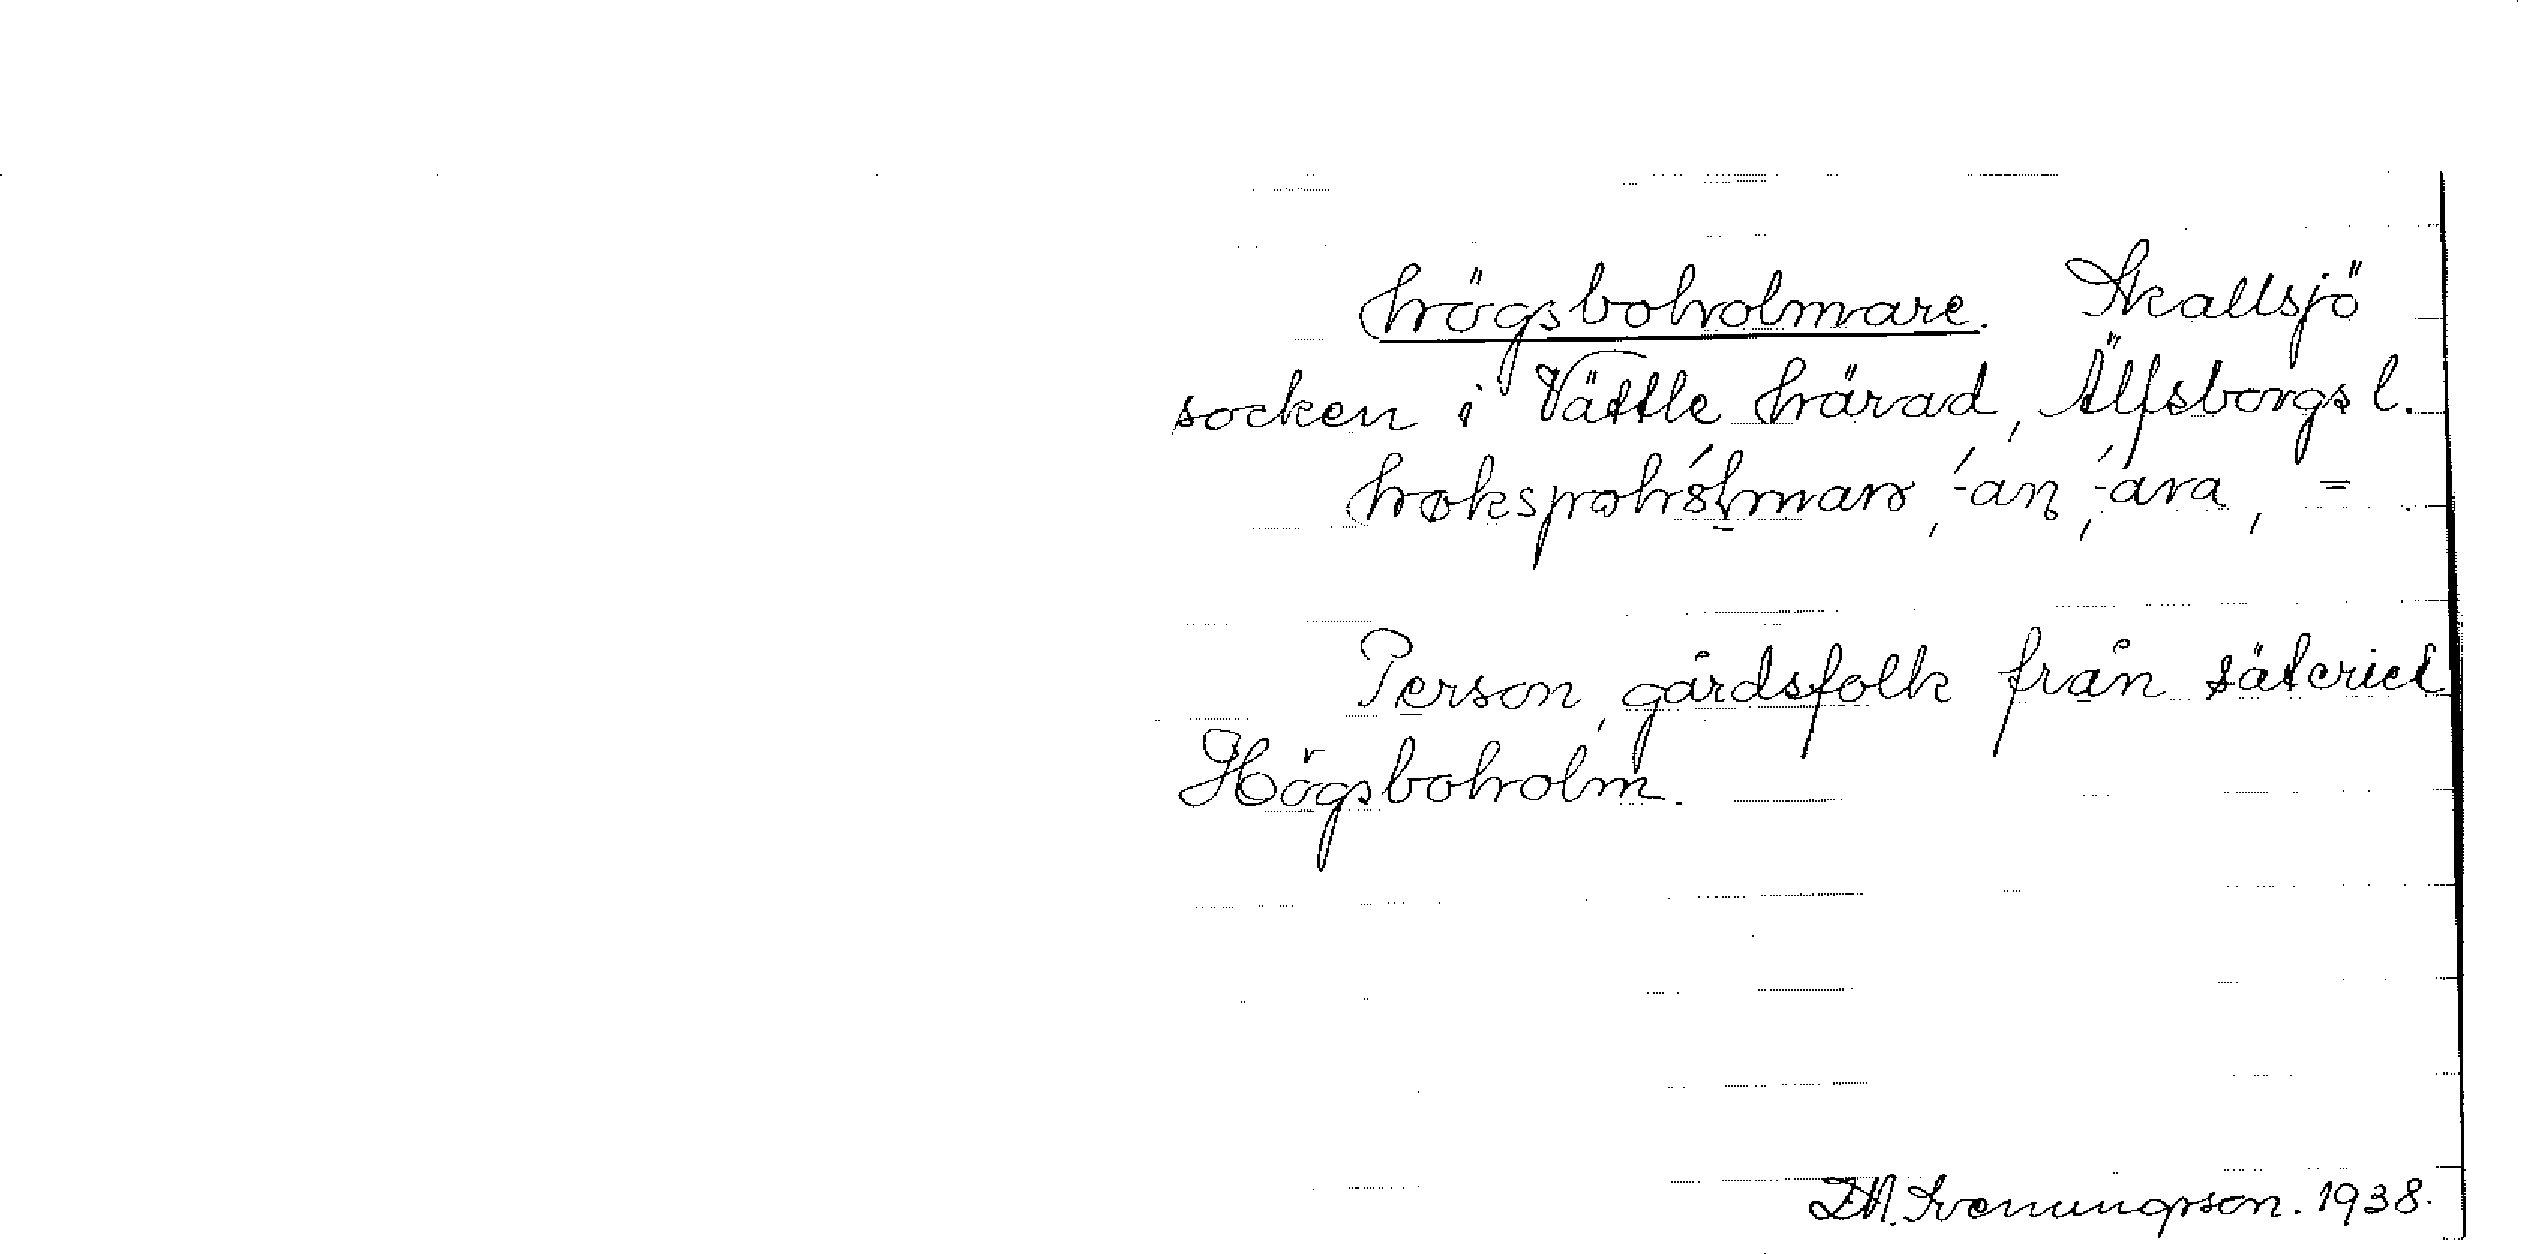 högsboholmare. Skallsjö
socken i Vättle härad, Älfsborgs l.
Person, gårdsfolk från säteriet
Högsboholm.
Svenungsson. 1938.